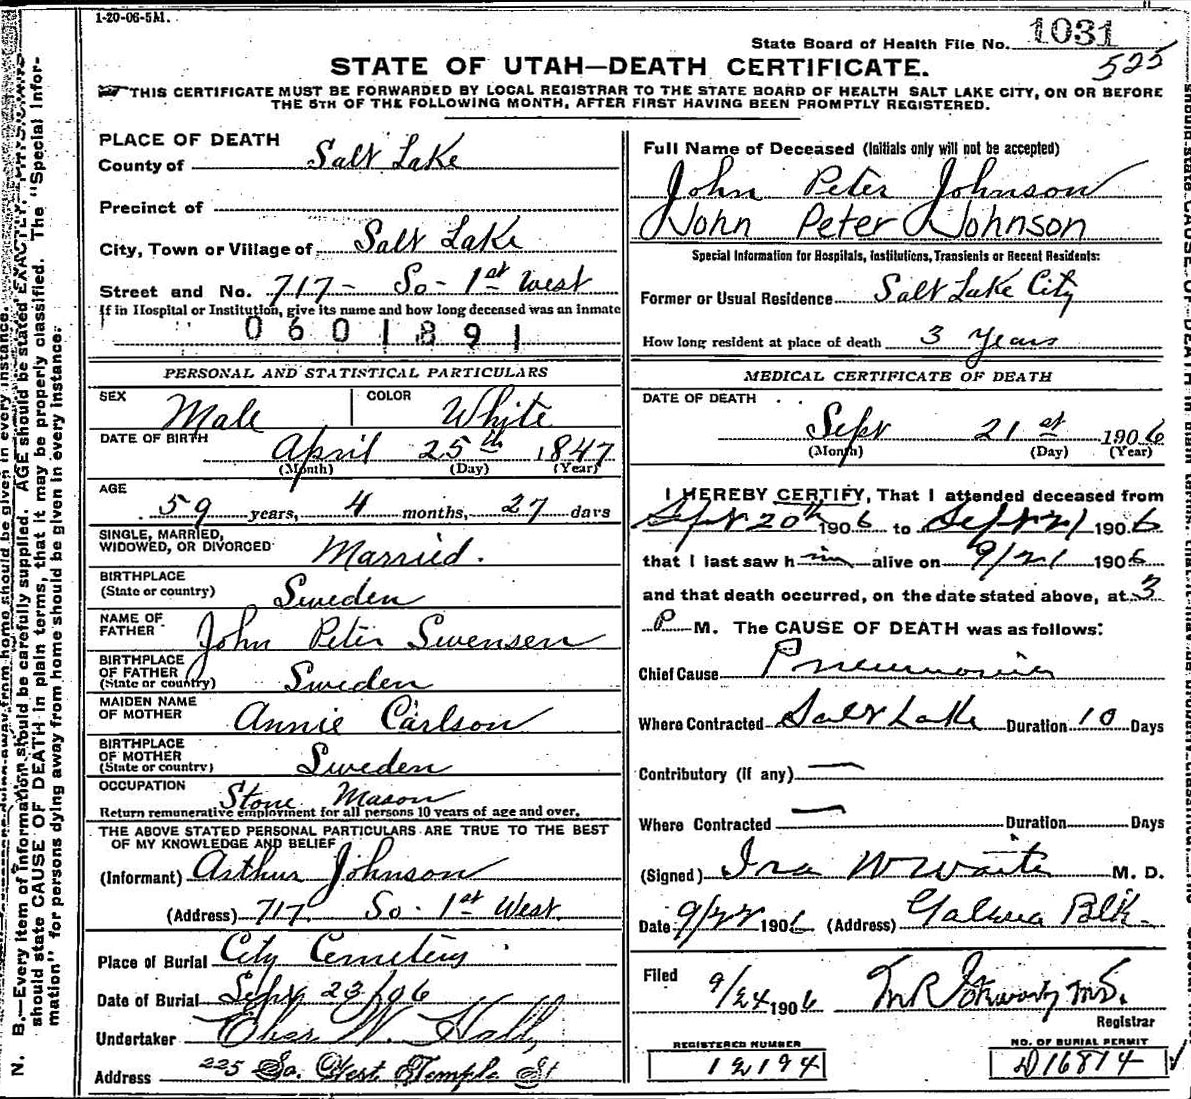 1-20-06-5M.
State Board of Health File No. 1031
525
STATE OF UTAH—DEATH CERTIFICATE.
THIS CERTIFICATE MUST BE FORWARDED BY LOCAL REGISTRAR TO THE STATE BOARD OF HEALTH SALT LAKE CITY, ON OR BEFORE
THE 5TH OF THE FOLLOWING MONTH, AFTER FIRST HAVING BEEN PROMPTLY REGISTERED.
PLACE OF DEATH
County of Salt Lake
Precinct of
City, Town or Village of Salt Lake
Street and No. 717- So- 1st West
If in Hospital or Institution, give its name and how long deceased was an inmate
0601891
PERSONAL AND STATISTICAL PARTICULARS
SEX Male COLOR White
DATE OF BIRTH April 25th, 1847
(Month) (Day) (Year)
AGE
59 years, 4 months, 27 days
SINGLE, MARRIED,
WIDOWED, OR DIVORCED Married.
BIRTHPLACE
(State or country) Sweden
NAME OF
FATHER John Peter Swensen
BIRTHPLACE
OF FATHER
(State or country) Sweden
MAIDEN NAME
OF MOTHER Annie Carlson
BIRTHPLACE
OF MOTHER
(State or country) Sweden
OCCUPATION Stone Mason
Return remunerative employment for all persons 10 years of age and over.
THE ABOVE STATED PERSONAL PARTICULARS ARE TRUE TO THE BEST
OF MY KNOWLEDGE AND BELIEF
(Informant) Arthur Johnson
(Address) 717 So. 1st West.
Place of Burial City Cemetery
Date of Burial Sept 23/06
Undertaker Eber W. Hall
Address 225 So. West Temple St
Full Name of Deceased (Initials only will not be accepted)
John Peter Johnson
John Peter Johnson
Special Information for Hospitals, Institutions, Transients or Recent Residents:
Former or Usual Residence Salt Lake City
How long resident at place of death 3 Years
MEDICAL CERTIFICATE OF DEATH
DATE OF DEATH
Sept 21st 1906
(Month) (Day) (Year)
I HEREBY CERTIFY, That I attended deceased from
Sept 20th 1906 to Sept 21 1906
that I last saw him alive on 9/21 1906
and that death occurred, on the date stated above, at 3
P M. The CAUSE OF DEATH was as follows:
Chief Cause Pneumonia
Where Contracted Salt Lake Duration 10 Days
Contributory (if any) —
Where Contracted — Duration Days
(Signed) Ira W Waite M. D.
Date 9/22 1906 (Address) Blk.
Filed 9/24 1906
Registrar
REGISTERED NUMBER
12194
NO. OF BURIAL PERMIT
D16814
N. B.—Every item of information should be carefully supplied. AGE should be stated EXACTLY.
should state CAUSE OF DEATH in plain terms, that it may be properly classified. The "Special Infor-
mation" for persons dying away from home should be given in every instance.